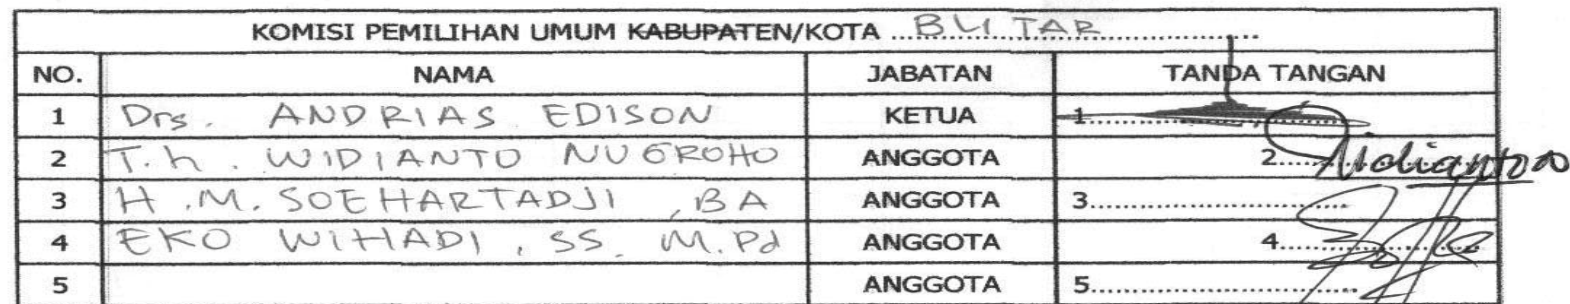 KOMISI PEMILIHAN UMUM KABUPATEN/KOTA BLITAR
NO. NAMA JABATAN TANDA TANGAN
1 Drs. ANDRIAS EDISON KETUA 1
2 T.h. WIDIANTO NUGROHO ANGGOTA 2 Widianto
3 H.M. SOEHARTADJI, BA ANGGOTA 3
4 EKO WIHADI, SS. M.Pd ANGGOTA 4
5 ANGGOTA 5